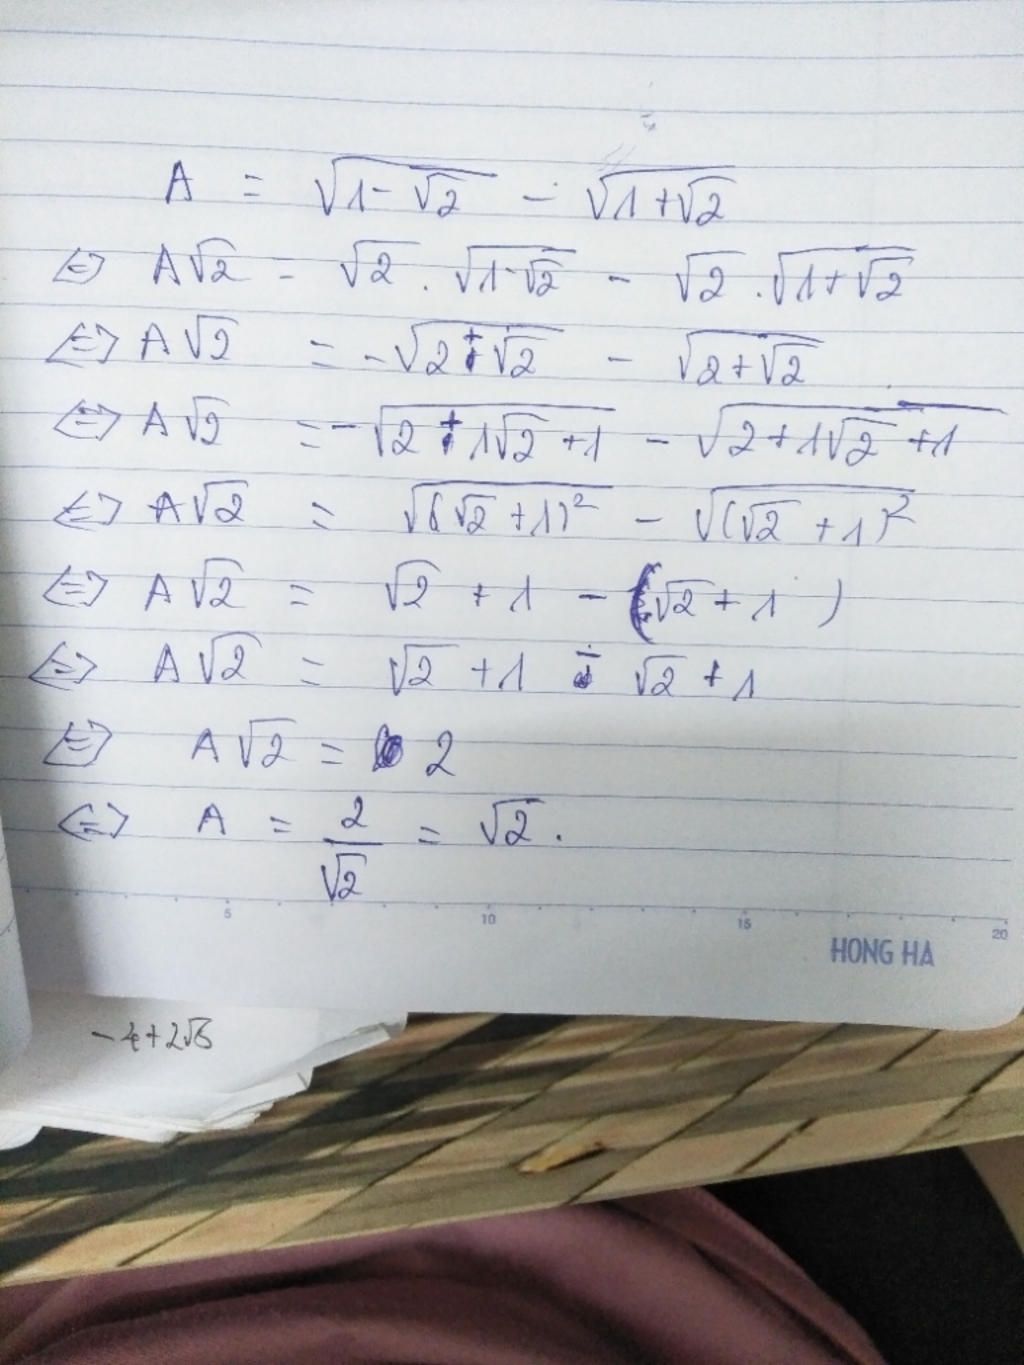 A = √(1-√2) - √(1+√2)
⇔ A√2 = √2 . √(1-√2) - √2 . √(1+√2)
⇔ A√2 = -√(2+√2) - √(2+√2)
⇔ A√2 = -√(2+1√2+1) - √(2+1√2+1)
⇔ A√2 = √((√2+1)²) - √((√2+1)²)
⇔ A√2 = √2 + 1 - (√2 + 1)
⇔ A√2 = √2 + 1 - √2 + 1
⇔ A√2 = 2
⇔ A = 2/√2 = √2 .
5 10 15 20
HONG HA